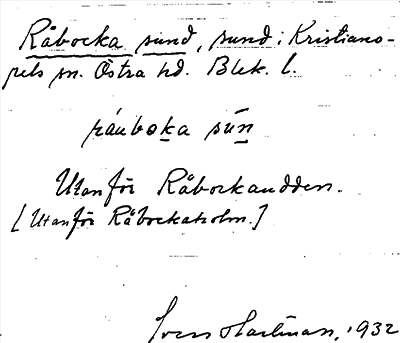 Råbocka sund, sund i Kristiano-
pels sn. Östra hd. Blek. l.
ráuboka sún
Utanför Råbockaudden.
[Utanför Råbockaholm.]
Sven Hartman, 1932